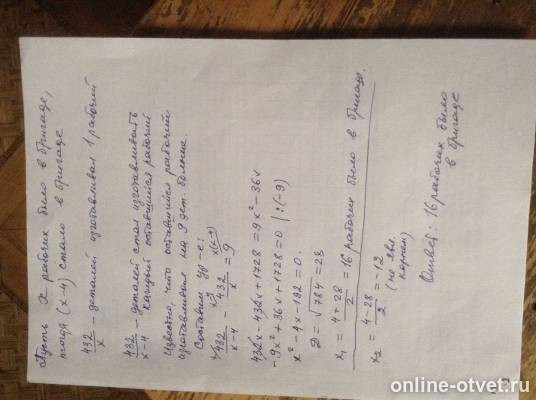 Пусть x рабочих было в бригаде,
тогда (x-4) стало в бригаде
432/x - деталей изготавливал 1 рабочий
432/x-4 - деталей стал изготавливать
каждый оставшийся рабочий
Известно, что оставшийся рабочий
изготавливал на 9 дет. больше.
Составим ур-е:
432/x-4 - 432/x = 9
432x-432x+1728=9x²-36x
-9x²+36x+1728=0 |:(-9)
x²-4x-192=0.
D=√784=28
x₁ = 4+28/2 = 16 рабочих было в бригаде.
x₂ = 4-28/2 = -12
(не явл.
корнем)
Ответ: 16 рабочих было
в бригаде
online-otvet.ru